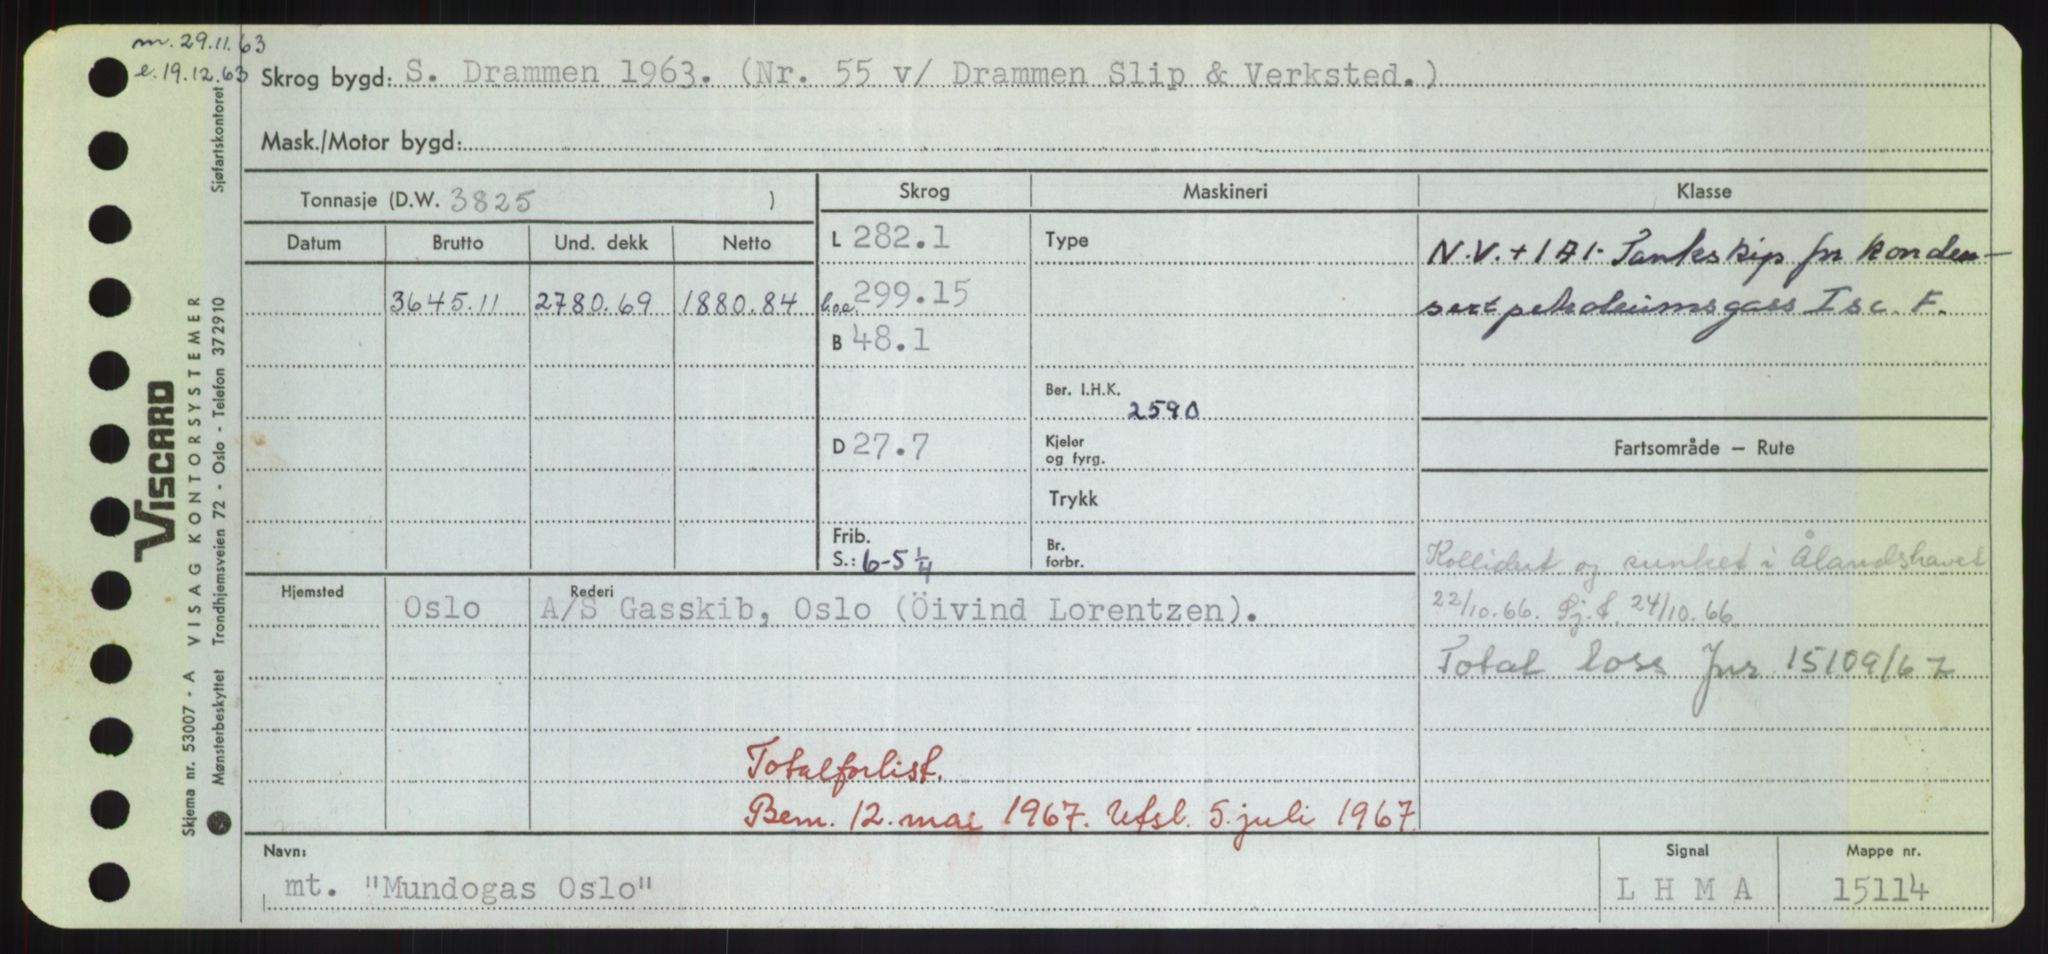 m. 29.11.63
e. 19.12.63
Skrog bygd: S. Drammen 1963. (Nr. 55 v/ Drammen Slip & Verksted.)
Mask./Motor bygd:
Tonnasje (D.W. 3825 )
Skrog
Maskineri
Klasse
Datum Brutto Und. dekk Netto
L 282.1
Type
N.V. + 1A1- Tankskip for konden-
3645.11 2780.69 1880.84
l.o.a. 299.15
sert petroleumsgass Isc. F.
B 48.1
Ber. I.H.K. 2590
D 27.7
Kjeler
og fyrg.
Fartsområde – Rute
Trykk
Frib.
S.: 6-5 1/4
Br.
forbr.
Kollidert og sunket i Ålandshavet
22/10.66. Sj.f. 24/10.66.
Total loss Jnr 15109/67
Hjemsted Oslo
Rederi
A/S Gasskib, Oslo (Öivind Lorentzen).
Totalforlist.
Bem. 12. mai 1967. Utsl. 5. juli 1967.
Navn:
mt. "Mundogas Oslo"
Signal
L H M A
Mappe nr.
15114
Sjøfartskontoret
VISCARD
VISAG KONTORSYSTEMER
Trondhjemsveien 72 - Oslo - Telefon 372910
Skjema nr. 53007 - A
Mønsterbeskyttet